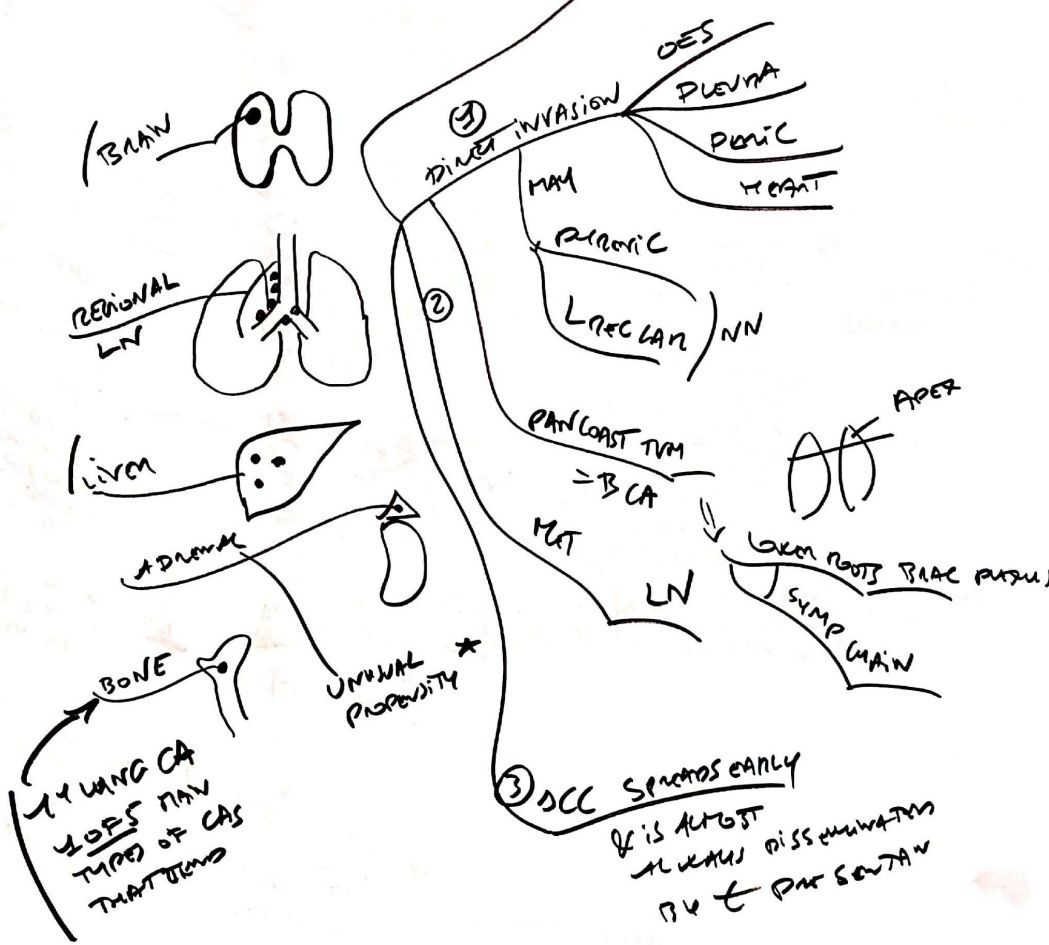 BRAIN
REGIONAL
LN
LIVER
ADRENAL
UNUSUAL
PROPENSITY ★
BONE
1Y LUNG CA
1 OF 5 MAIN
TYPES OF CAS
THAT TEND
①
DIRECT INVASION
OES
PLEURA
PERIC
HEART
MAY
PHRENIC
L REC LAR
NN
PANCOAST TUM
= B CA
APEX
LOWER ROOTS BRAC PLEXUS
SYMP CHAIN
②
MET
LN
③ SCC SPREADS EARLY
& IS ALMOST
ALWAYS DISSEMINATED
BY t PRESENTAN